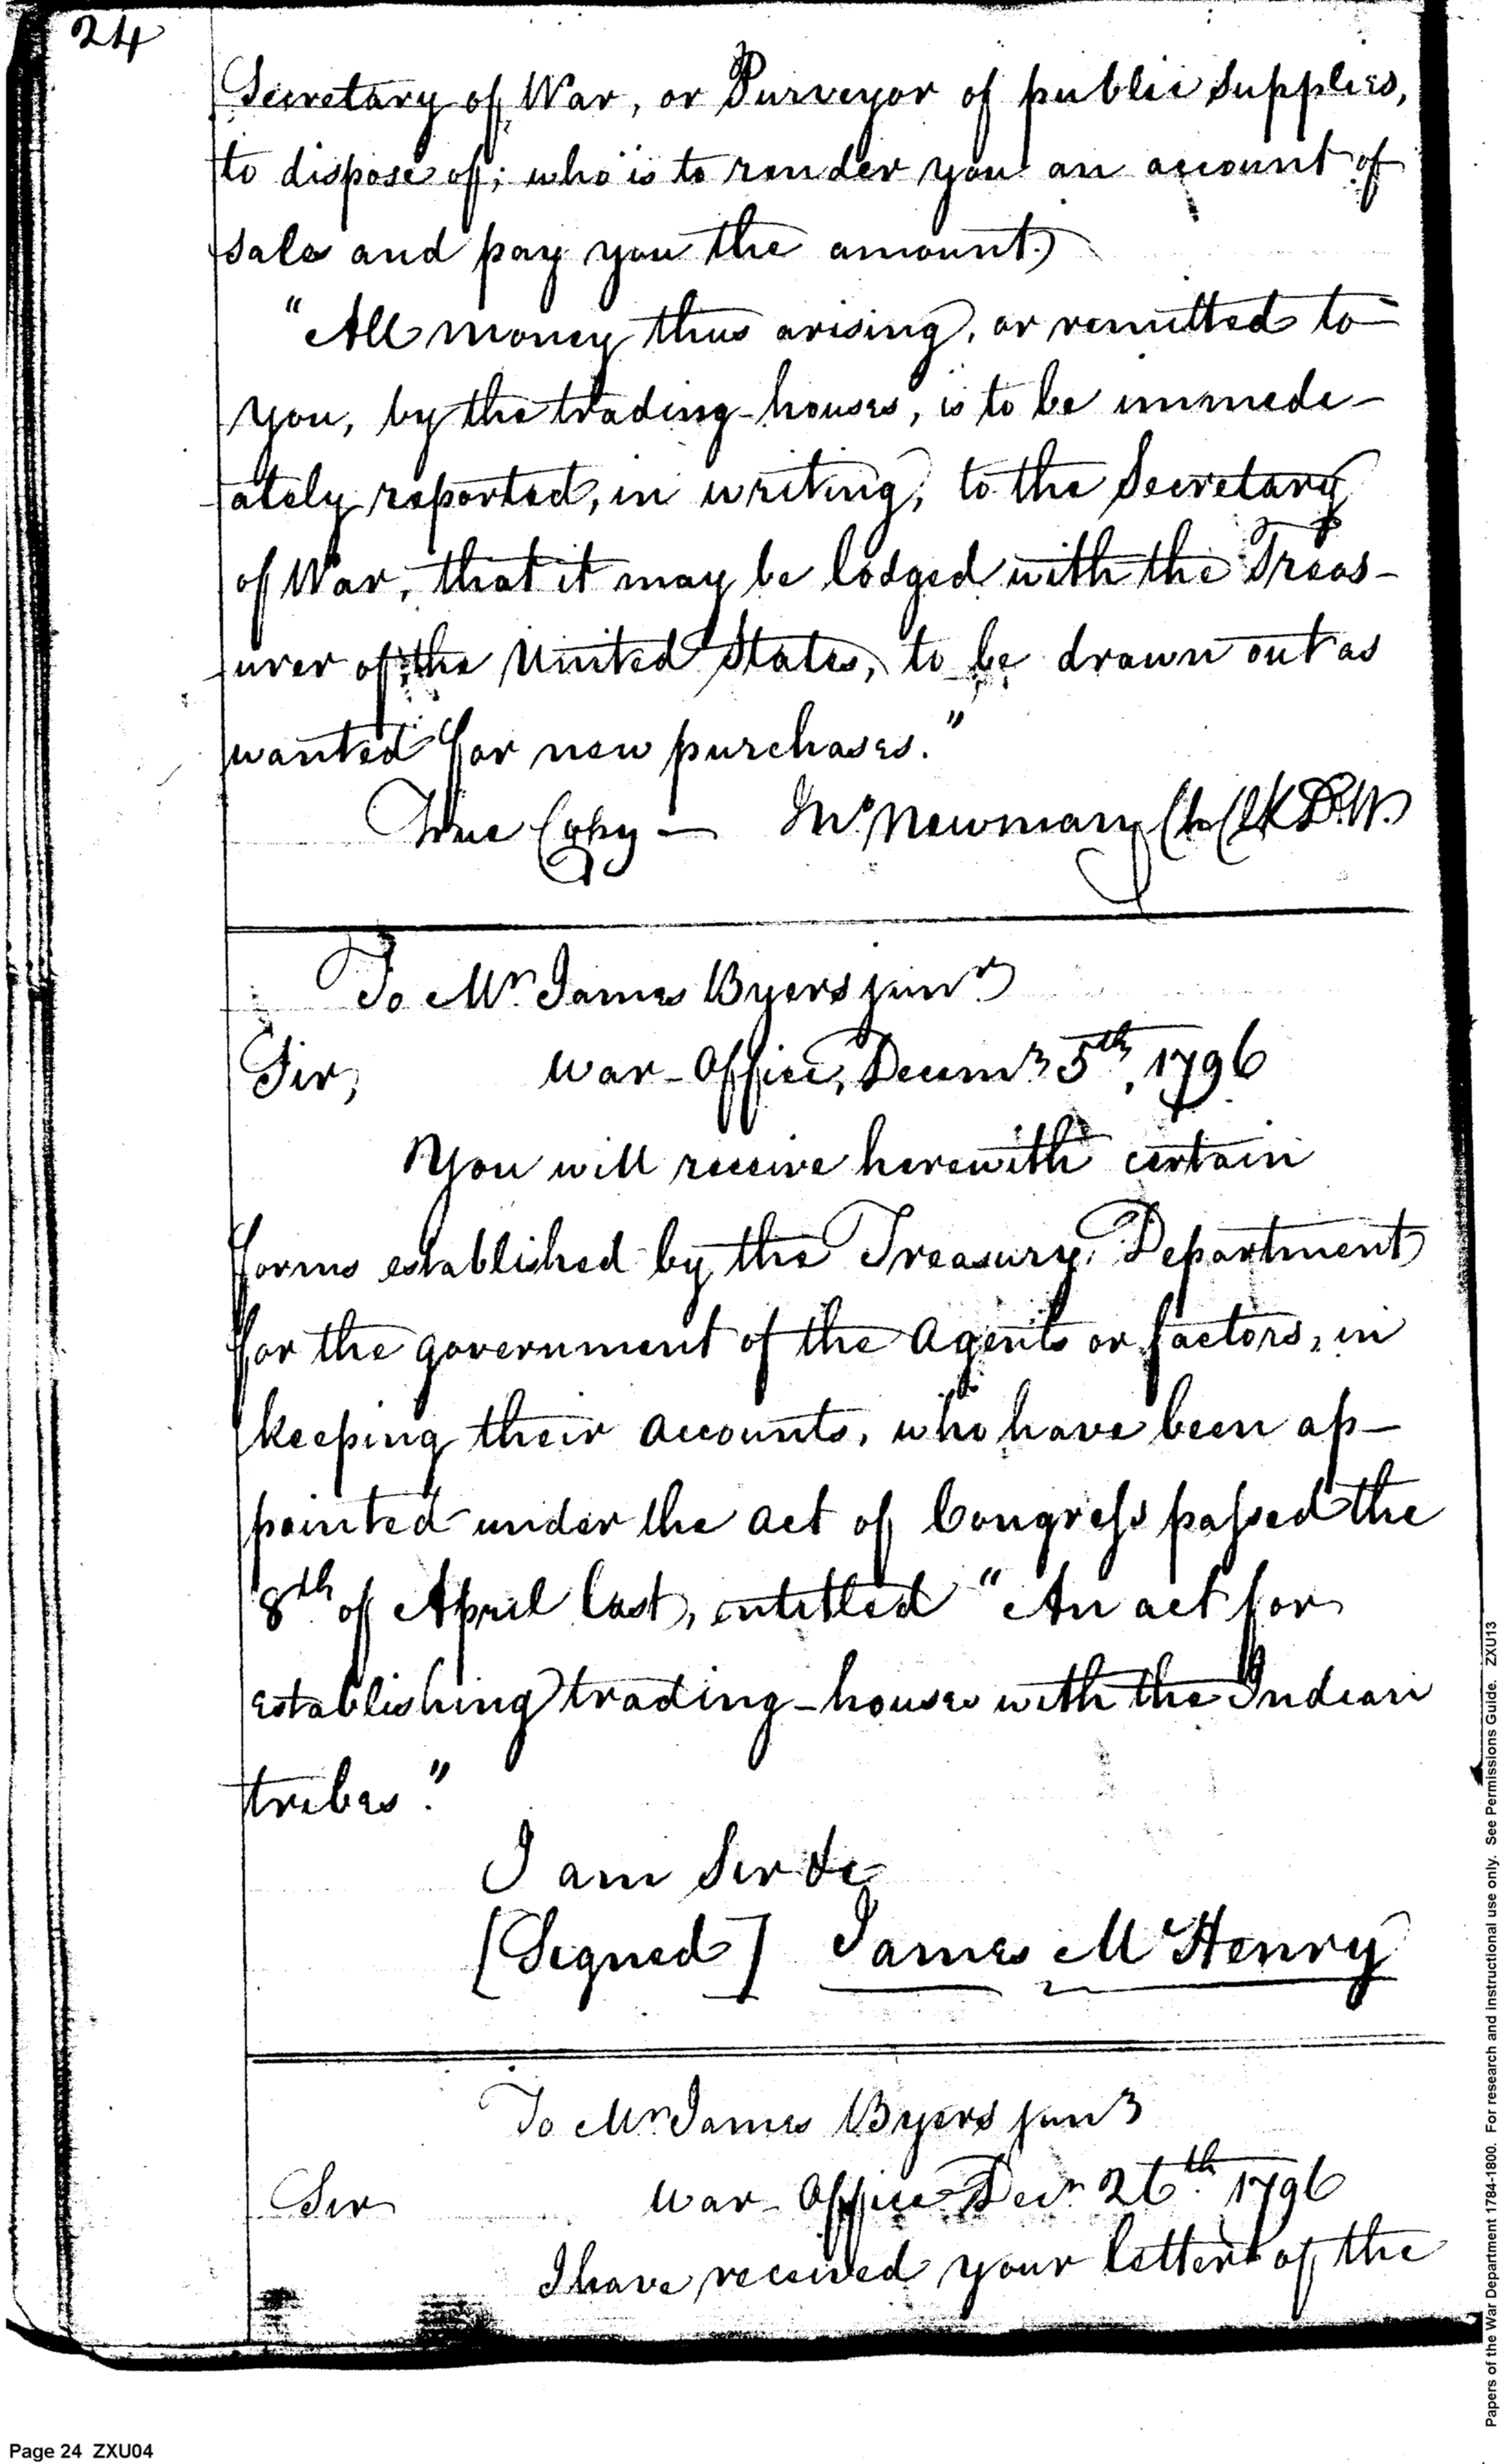 24
Secretary of War, or Purveyor of public Supplies,
to dispose of; who is to render you an account of
sales and pay you the amount.)
"All money thus arising, or remitted to
you, by the trading-houses, is to be immede-
ately reported, in writing, to the Secretary
of War, that it may be lodged with the Treas-
urer of the United States, to be drawn out as
wanted for new purchases."
True Copy — Newman Ch Clk D.W.
To Mr. James Byers junr
Sir, War-Office, Decemr 5th, 1796
You will receive herewith certain
forms established by the Treasury Department
for the government of the Agents or factors, in
keeping their accounts, who have been ap-
pointed under the act of Congress passed the
8th of April last, entitled "An act for
establishing trading-houses with the Indian
tribes."
I am Sir &c
[Signed] James McHenry
To Mr James Byers junr
Sir War-Office Decr 26th 1796
I have received your letters of the
Page 24 ZXU04
Papers of the War Department 1784-1800. For research and instructional use only. See Permissions Guide. ZXU13